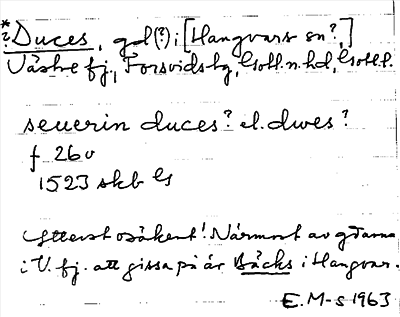 *? Duces, gd (?) i [Hangvars sn?,]
Västre fj., Forsvids tg, Gotl. n. hd, Gotl. l.
seuerin duces? el. dwes?
f 26 v
1523 skb G
Ytterst osäkert! Närmast av gårdarna
i V. fj. att gissa på är Bäcks i Hangvar.
E. M-s 1963